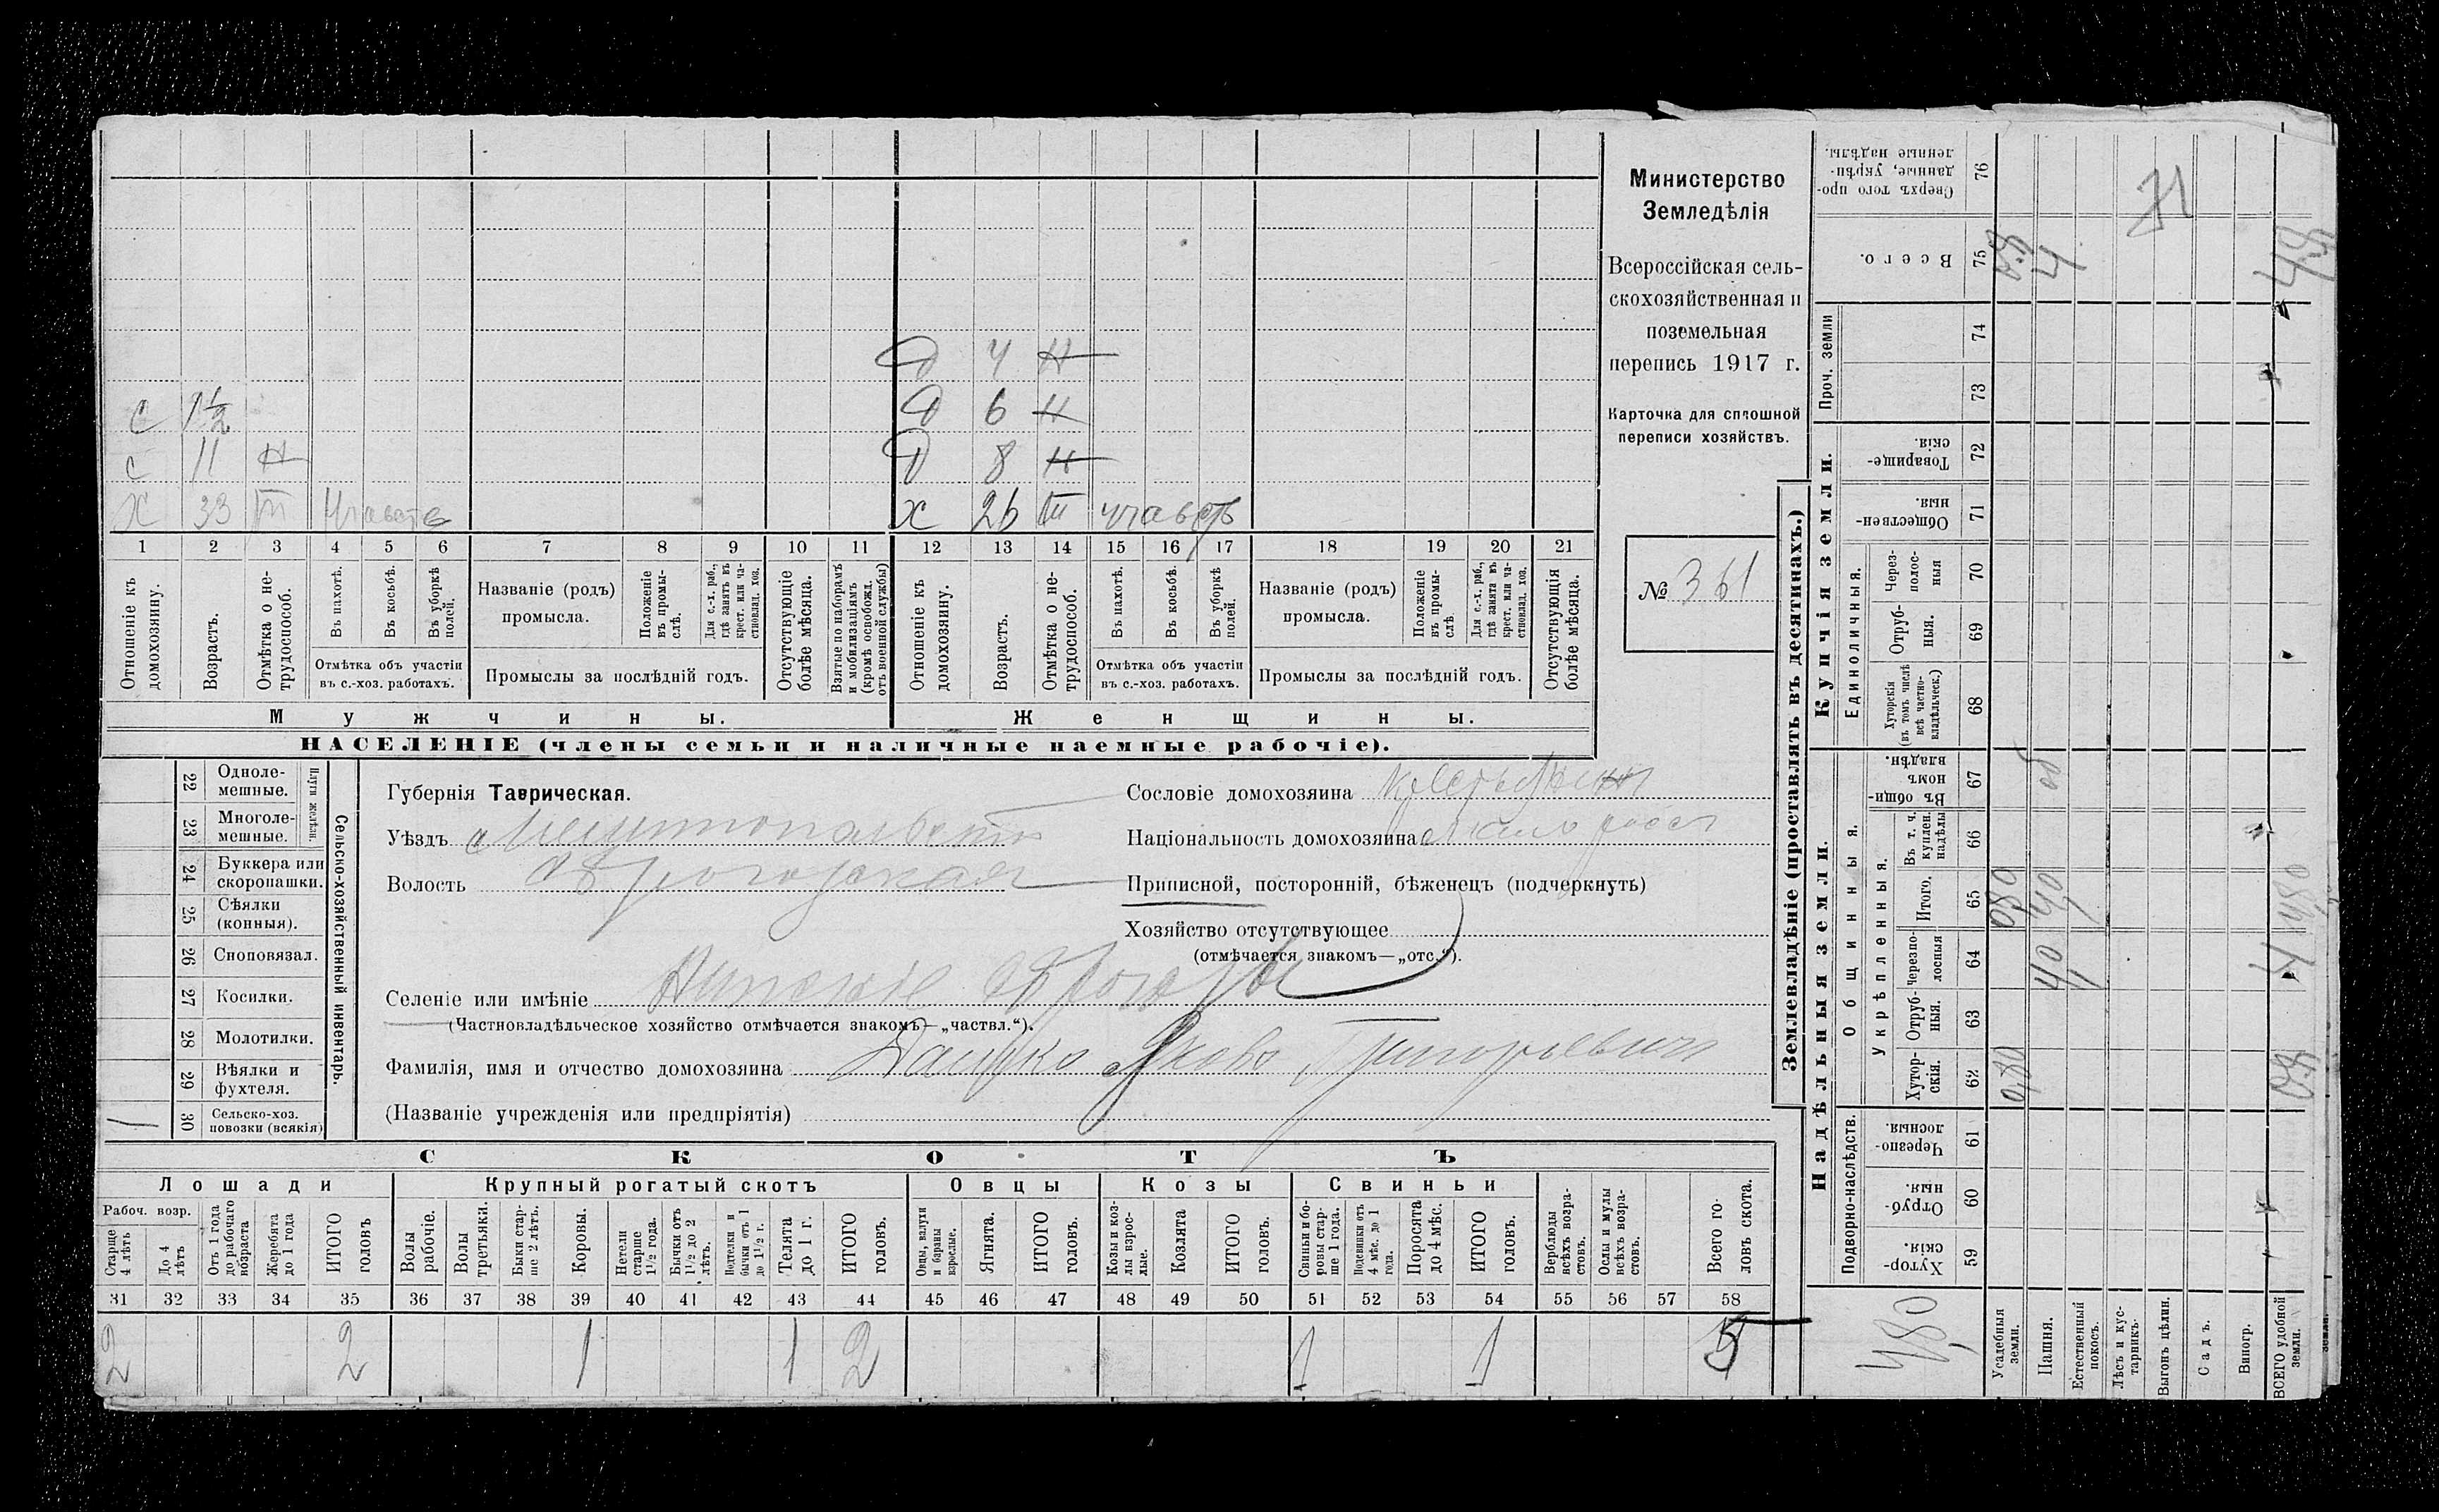 Министерство
Земледѣлія
Всероссійская сель-
скохозяйственная и
поземельная
перепись 1917 г.
Карточка для сплошной
переписи хозяйствъ.
№ 361
Д 4 Н
С 1½ Д 6 Н
С 11 Н Д 8 Н
Х 33 III Участв Х 26 III участв
1 2 3 4 5 6 7 8 9 10 11 12 13 14 15 16 17 18 19 20 21
Отношеніе къ домохозяину.
Возрастъ.
Отмѣтка о не-трудоспособ.
Въ пахотѣ.
Въ косьбѣ.
Въ уборкѣ полей.
Отмѣтка объ участіи
въ с.-хоз. работахъ.
Названіе (родъ)
промысла.
Положеніе въ промы-слѣ.
Для с.-х. раб., гдѣ занятъ въ крест. или ча-стновлад. хоз.
Промыслы за послѣдній годъ.
Отсутствующіе болѣе мѣсяца.
Взятые по наборамъ и мобилизаціямъ (кромѣ освобожд. отъ военной службы)
Отношеніе къ домохозяину.
Возрастъ.
Отмѣтка о не-трудоспособ.
Въ пахотѣ.
Въ косьбѣ.
Въ уборкѣ полей.
Отмѣтка объ участіи
въ с.-хоз. работахъ.
Названіе (родъ)
промысла.
Положеніе въ промы-слѣ.
Для с.-х. раб., гдѣ занята въ крест. или ча-стновлад. хоз.
Промыслы за послѣдній годъ.
Отсутствующія болѣе мѣсяца.
Мужчины. Женщины.
НАСЕЛЕНІЕ (члены семьи и наличные наемные рабочіе).
22 Одноле-мешные.
23 Многоле-мешные.
Плуги желѣзн.
24 Буккера или скоропашки.
25 Сѣялки (конныя).
26 Сноповязал.
27 Косилки.
28 Молотилки.
29 Вѣялки и фухтеля.
1 30 Сельско-хоз. повозки (всякія)
Сельско-хозяйственный инвентарь.
Губернія Таврическая.
Уѣздъ Мелитопольскій
Волость
Сословіе домохозяина крестьянин
Національность домохозяина малоросс
Приписной, посторонній, бѣженецъ (подчеркнуть)
Хозяйство отсутствующее
(отмѣчается знакомъ—„отс.“).
Селеніе или имѣніе
(Частновладѣльческое хозяйство отмѣчается знакомъ—„частвл.“).
Фамилія, имя и отчество домохозяина Дацко Яковъ Григорьевич
(Названіе учрежденія или предпріятія)
СКОТЪ
Лошади Крупный рогатый скотъ Овцы Козы Свиньи
Рабоч. возр.
Старше 4 лѣтъ
До 4 лѣтъ
Отъ 1 года до рабочаго возраста
Жеребята до 1 года
ИТОГО головъ
Волы рабочіе.
Волы третьяки.
Быки стар-ше 2 лѣтъ.
Коровы.
Нетели старше 1½ года.
Бычки отъ 1½ до 2 лѣтъ.
Подтелки и бычки отъ 1 до 1½ г.
Телята до 1 г.
ИТОГО головъ.
Овцы, валухи и бараны взрослые.
Ягнята.
ИТОГО головъ.
Козы и коз-лы взрос-лые.
Козлята
ИТОГО головъ.
Свиньи и бо-ровы стар-ше 1 года.
Подсвинки отъ 4 мѣс. до 1 года.
Поросята до 4 мѣс.
ИТОГО головъ.
Верблюды всѣхъ возра-стовъ.
Ослы и мулы всѣхъ возра-стовъ.
Всего го-ловъ скота.
31 32 33 34 35 36 37 38 39 40 41 42 43 44 45 46 47 48 49 50 51 52 53 54 55 56 57 58
2 2 1 1 2 1 1 5
Землевладѣніе (проставлять въ десятинахъ.)
Надѣльныя земли.
Купчія земли.
Проч. земли
Подворно-наслѣдств.
Общинныя.
Укрѣпленныя.
Единоличныя.
Хутор-скія. 59
Отруб-ныя. 60
Черезпо-лосныя. 61
Хутор-скія. 62
Отруб-ныя. 63
Черезпо-лосныя 64
Итого. 65
Въ т. ч. куплен. надѣлы 66
Въ общи-номъ владѣн. 67
Хуторскія (въ томъ числѣ всѣ частно-владѣльческ.) 68
Отруб-ныя. 69
Через-полос-ныя 70
Обществен-ныя. 71
Товарище-скія. 72
73
74
Всего. 75
Сверхъ того про-данные, укрѣп-ленные надѣлы. 76
Усадебныя земли.
Пашня.
Естественный покосъ.
Лѣсъ и кус-тарникъ.
Выгонъ цѣлин.
Садъ.
Виногр.
ВСЕГО удобной земли.
4,80
0,80
40
080
40
71